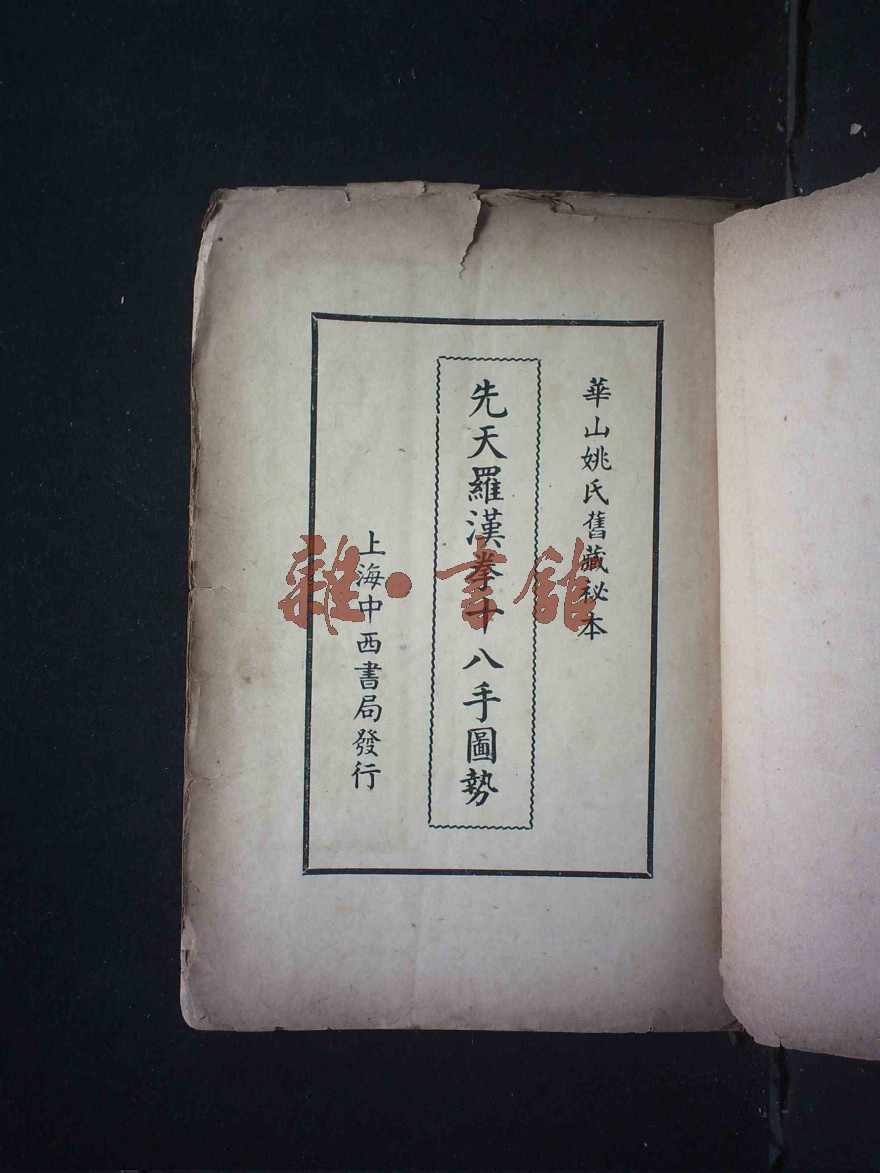 華山姚氏舊藏秘本
先天羅漢拳十八手圖勢
上海中西書局發行
雜·書館